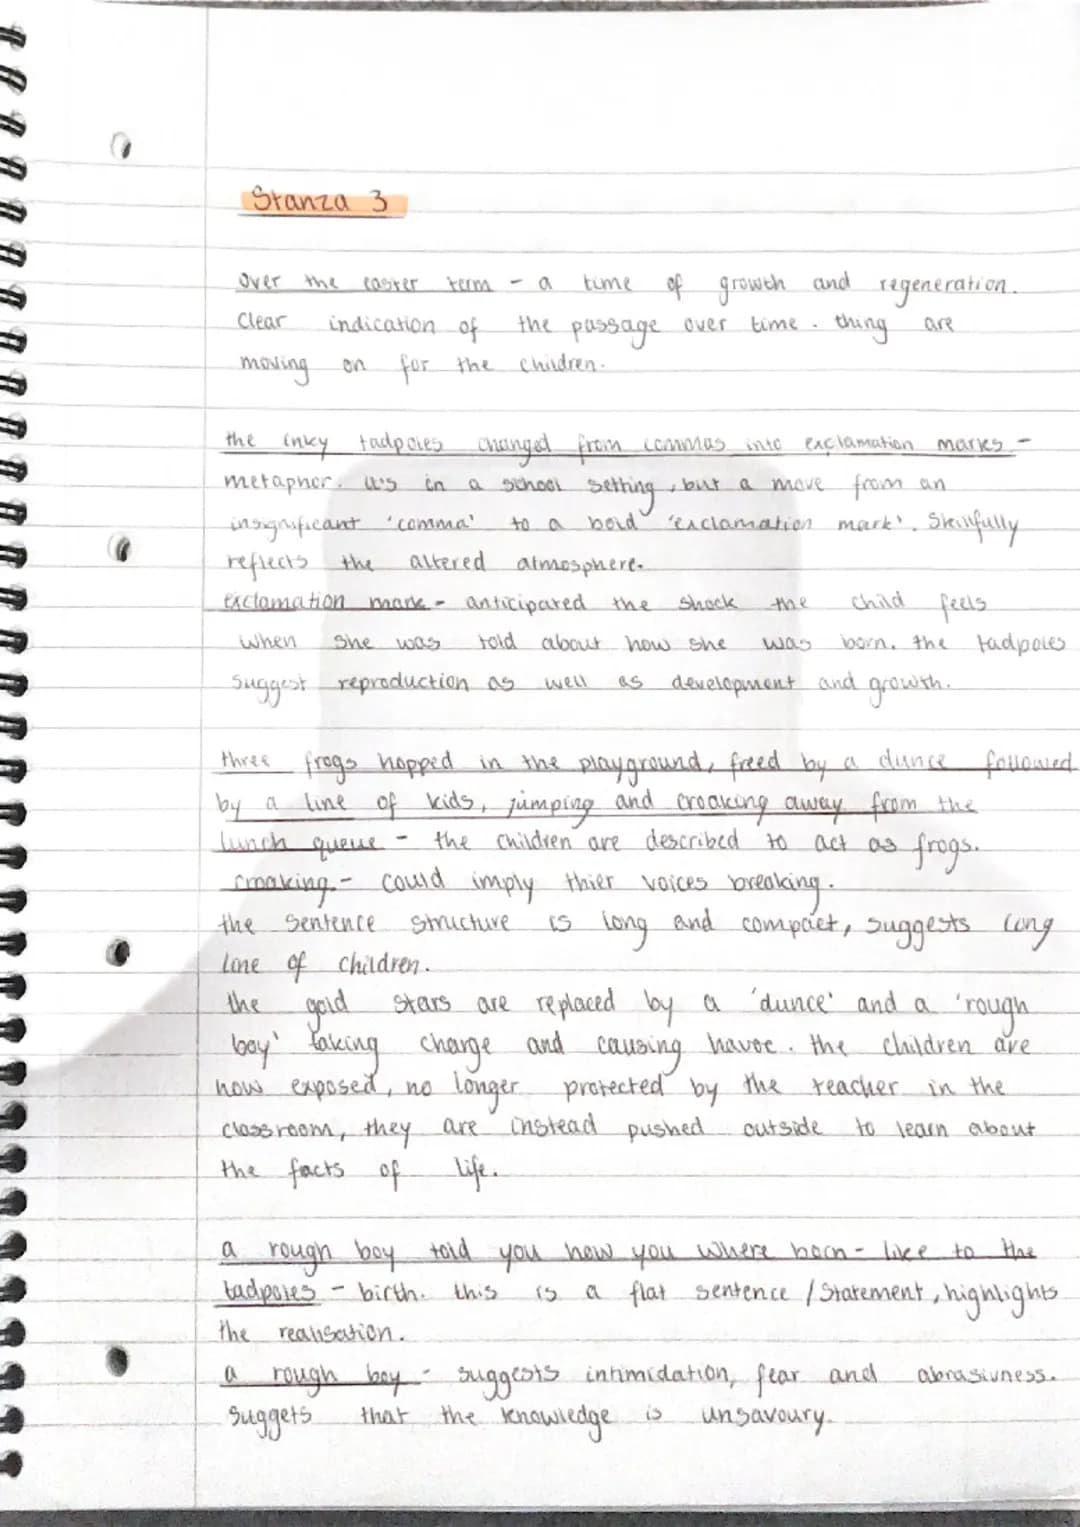 Stanza 3
over the easter term - a time of growth and regeneration.
Clear indication of the passage over time. thing are
moving on for the children.
the inky tadpoles changed from commas into exclamation marks -
metaphor. it's in a school setting, but a move from an
insignificant 'comma' to a bold 'exclamation mark'. Skillfully
reflects the altered atmosphere.
exclamation mark - anticipated the shock the child feels
when she was told about how she was born. the tadpoles
suggest reproduction as well as development and growth.
three frogs hopped in the playground, freed by a dunce followed
by a line of kids, jumping and croaking away from the
lunch queue - the children are described to act as frogs.
croaking - could imply thier voices breaking.
the sentence structure is long and compact, suggests long
line of children.
the gold stars are replaced by a 'dunce' and a 'rough
boy' taking charge and causing havoc. the children are
now exposed, no longer protected by the teacher in the
classroom, they are instead pushed outside to learn about
the facts of life.
a rough boy told you how you where born - like to the
tadpoles - birth. this is a flat sentence / Statement, highlights
the realisation.
a rough boy - suggests intimidation, fear and abrasivness.
suggets that the knowledge is unsavoury.